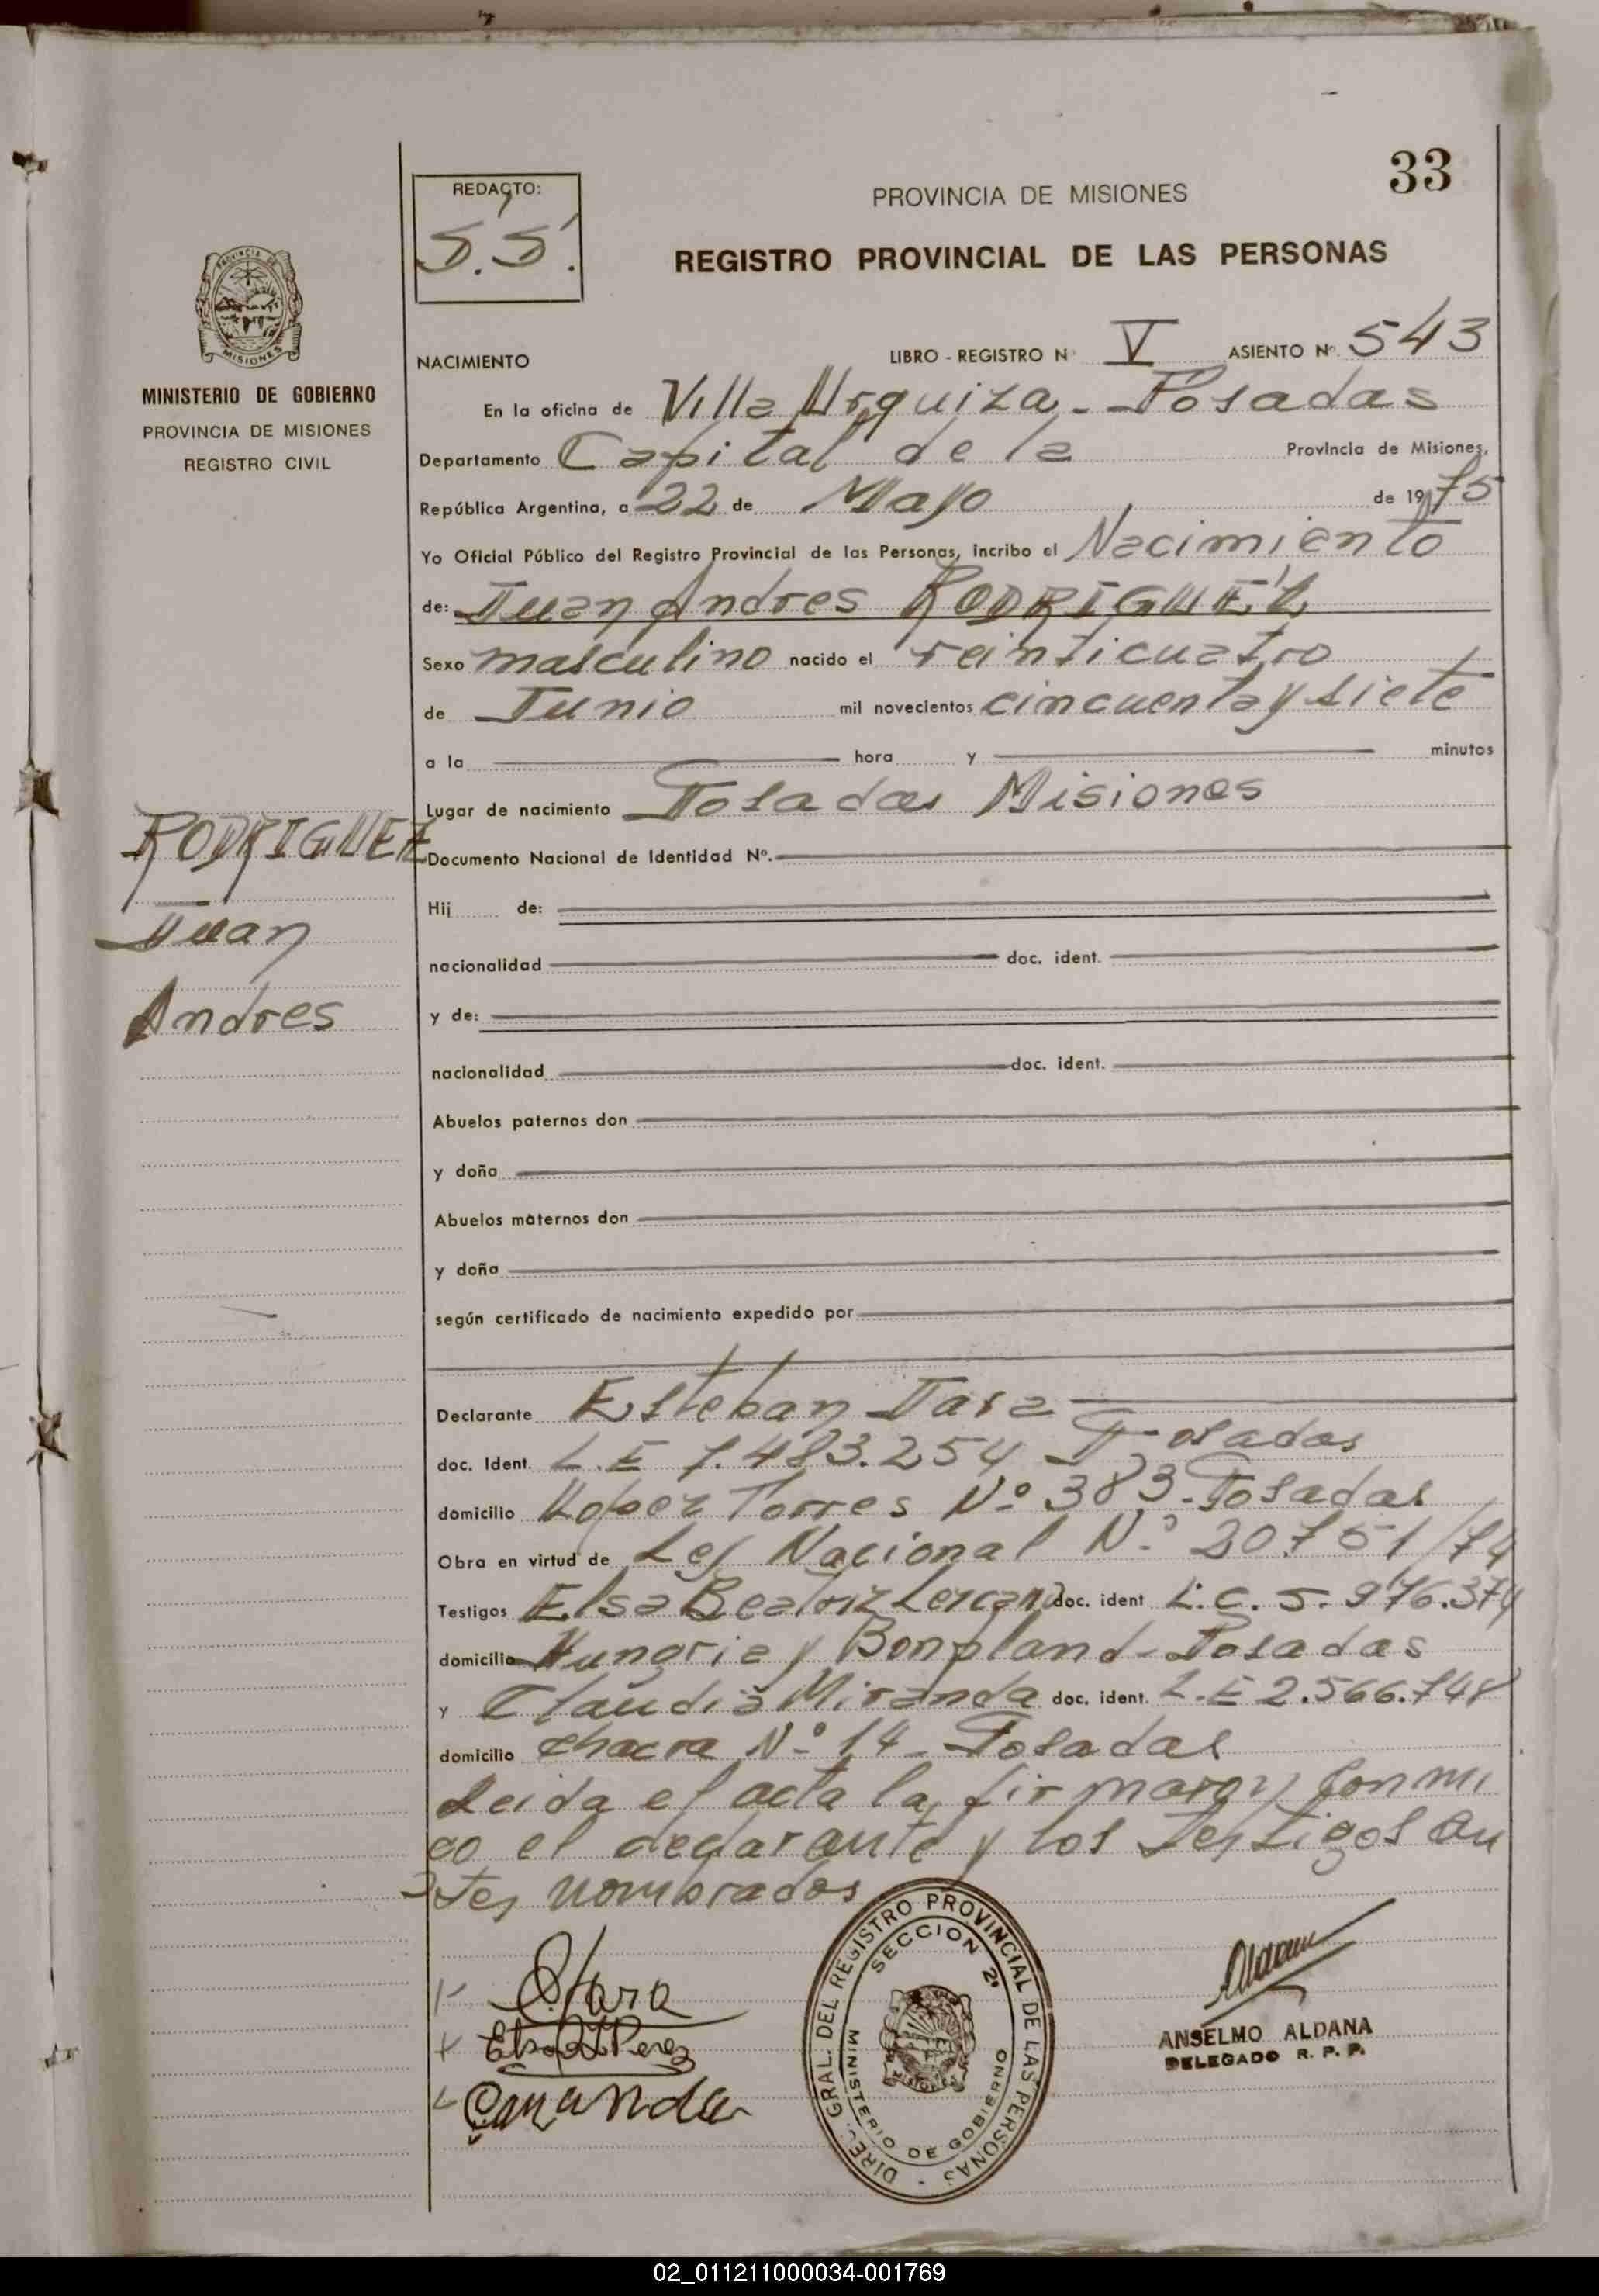 33
REDACTO:
S.S.
PROVINCIA DE MISIONES
REGISTRO PROVINCIAL DE LAS PERSONAS
MISIONES
MINISTERIO DE GOBIERNO
PROVINCIA DE MISIONES
REGISTRO CIVIL
NACIMIENTO LIBRO - REGISTRO Nº V ASIENTO Nº 543
En la oficina de Villa Urquiza - Posadas
Departamento Capital de la Provincia de Misiones,
República Argentina, a 22 de Mayo de 1975
Yo Oficial Público del Registro Provincial de las Personas, incribo el Nacimiento
de: Juan Andres RODRIGUEZ
Sexo masculino nacido el veinticuatro
de Junio mil novecientos cincuenta y siete
a la hora y minutos
Lugar de nacimiento Posadas Misiones
RODRIGUEZ
Juan
Andres
Documento Nacional de Identidad Nº.
Hij de:
nacionalidad doc. ident.
y de:
nacionalidad doc. ident.
Abuelos paternos don
y doña
Abuelos maternos don
y doña
según certificado de nacimiento expedido por
Declarante Esteban Jara
doc. Ident. L.E 7.483.254 Posadas
domicilio Lopez Torres Nº 383 - Posadas
Obra en virtud de Ley Nacional Nº 20751/74
Testigos Elsa Beatriz doc. ident L.C. 5.976.374
domicilio Hungria y Bonpland - Posadas
y Claudia Miranda doc. ident. L.E 2.566.748
domicilio chacra Nº 14 - Posadas
Leida el acta la firmaron conmi
go el declarante y los testigos an
tes nombrados
DIREC. GRAL. DEL REGISTRO PROVINCIAL DE LAS PERSONAS -
SECCION 2º
MINISTERIO DE GOBIERNO
ANSELMO ALDANA
DELEGADO R. P. P.
02_011211000034-001769